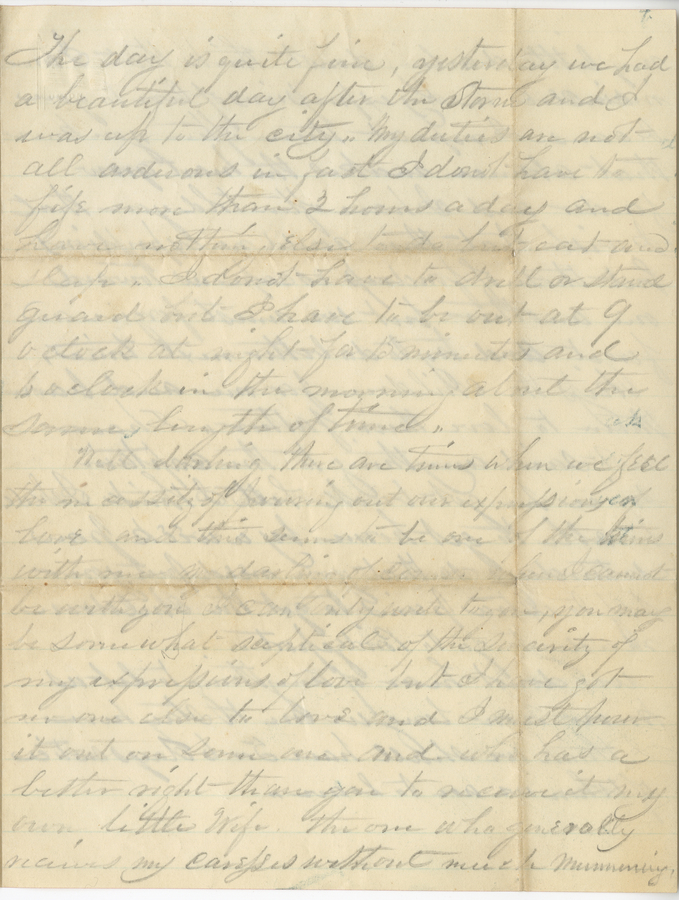 The day is quite fine, yesterday we had
a beautiful day after the storm and I
was up to the city. My duties are not
all arduous in fact I dont have to
fife more than 2 hours a day and
have nothing else to do but eat and
sleep. I dont have to drill or stand
guard but I have to be out at 9
oclock at night for 15 minutes and
6 oclock in the morning about the
same length of time.
Well darling there are times when we feel
the necessity of pouring out our expressions of
love and this seems to be one of the times
with me my darling of course when I cannot
be with you I can only write to you, you may
be somewhat sceptical of the sincerity of
my expressions of love but I have got
no one else to love and I must pour
it out on some one and who has a
better right than you to receive it my
own little Wife. The one who generally
recives my caresses without much murmuring.